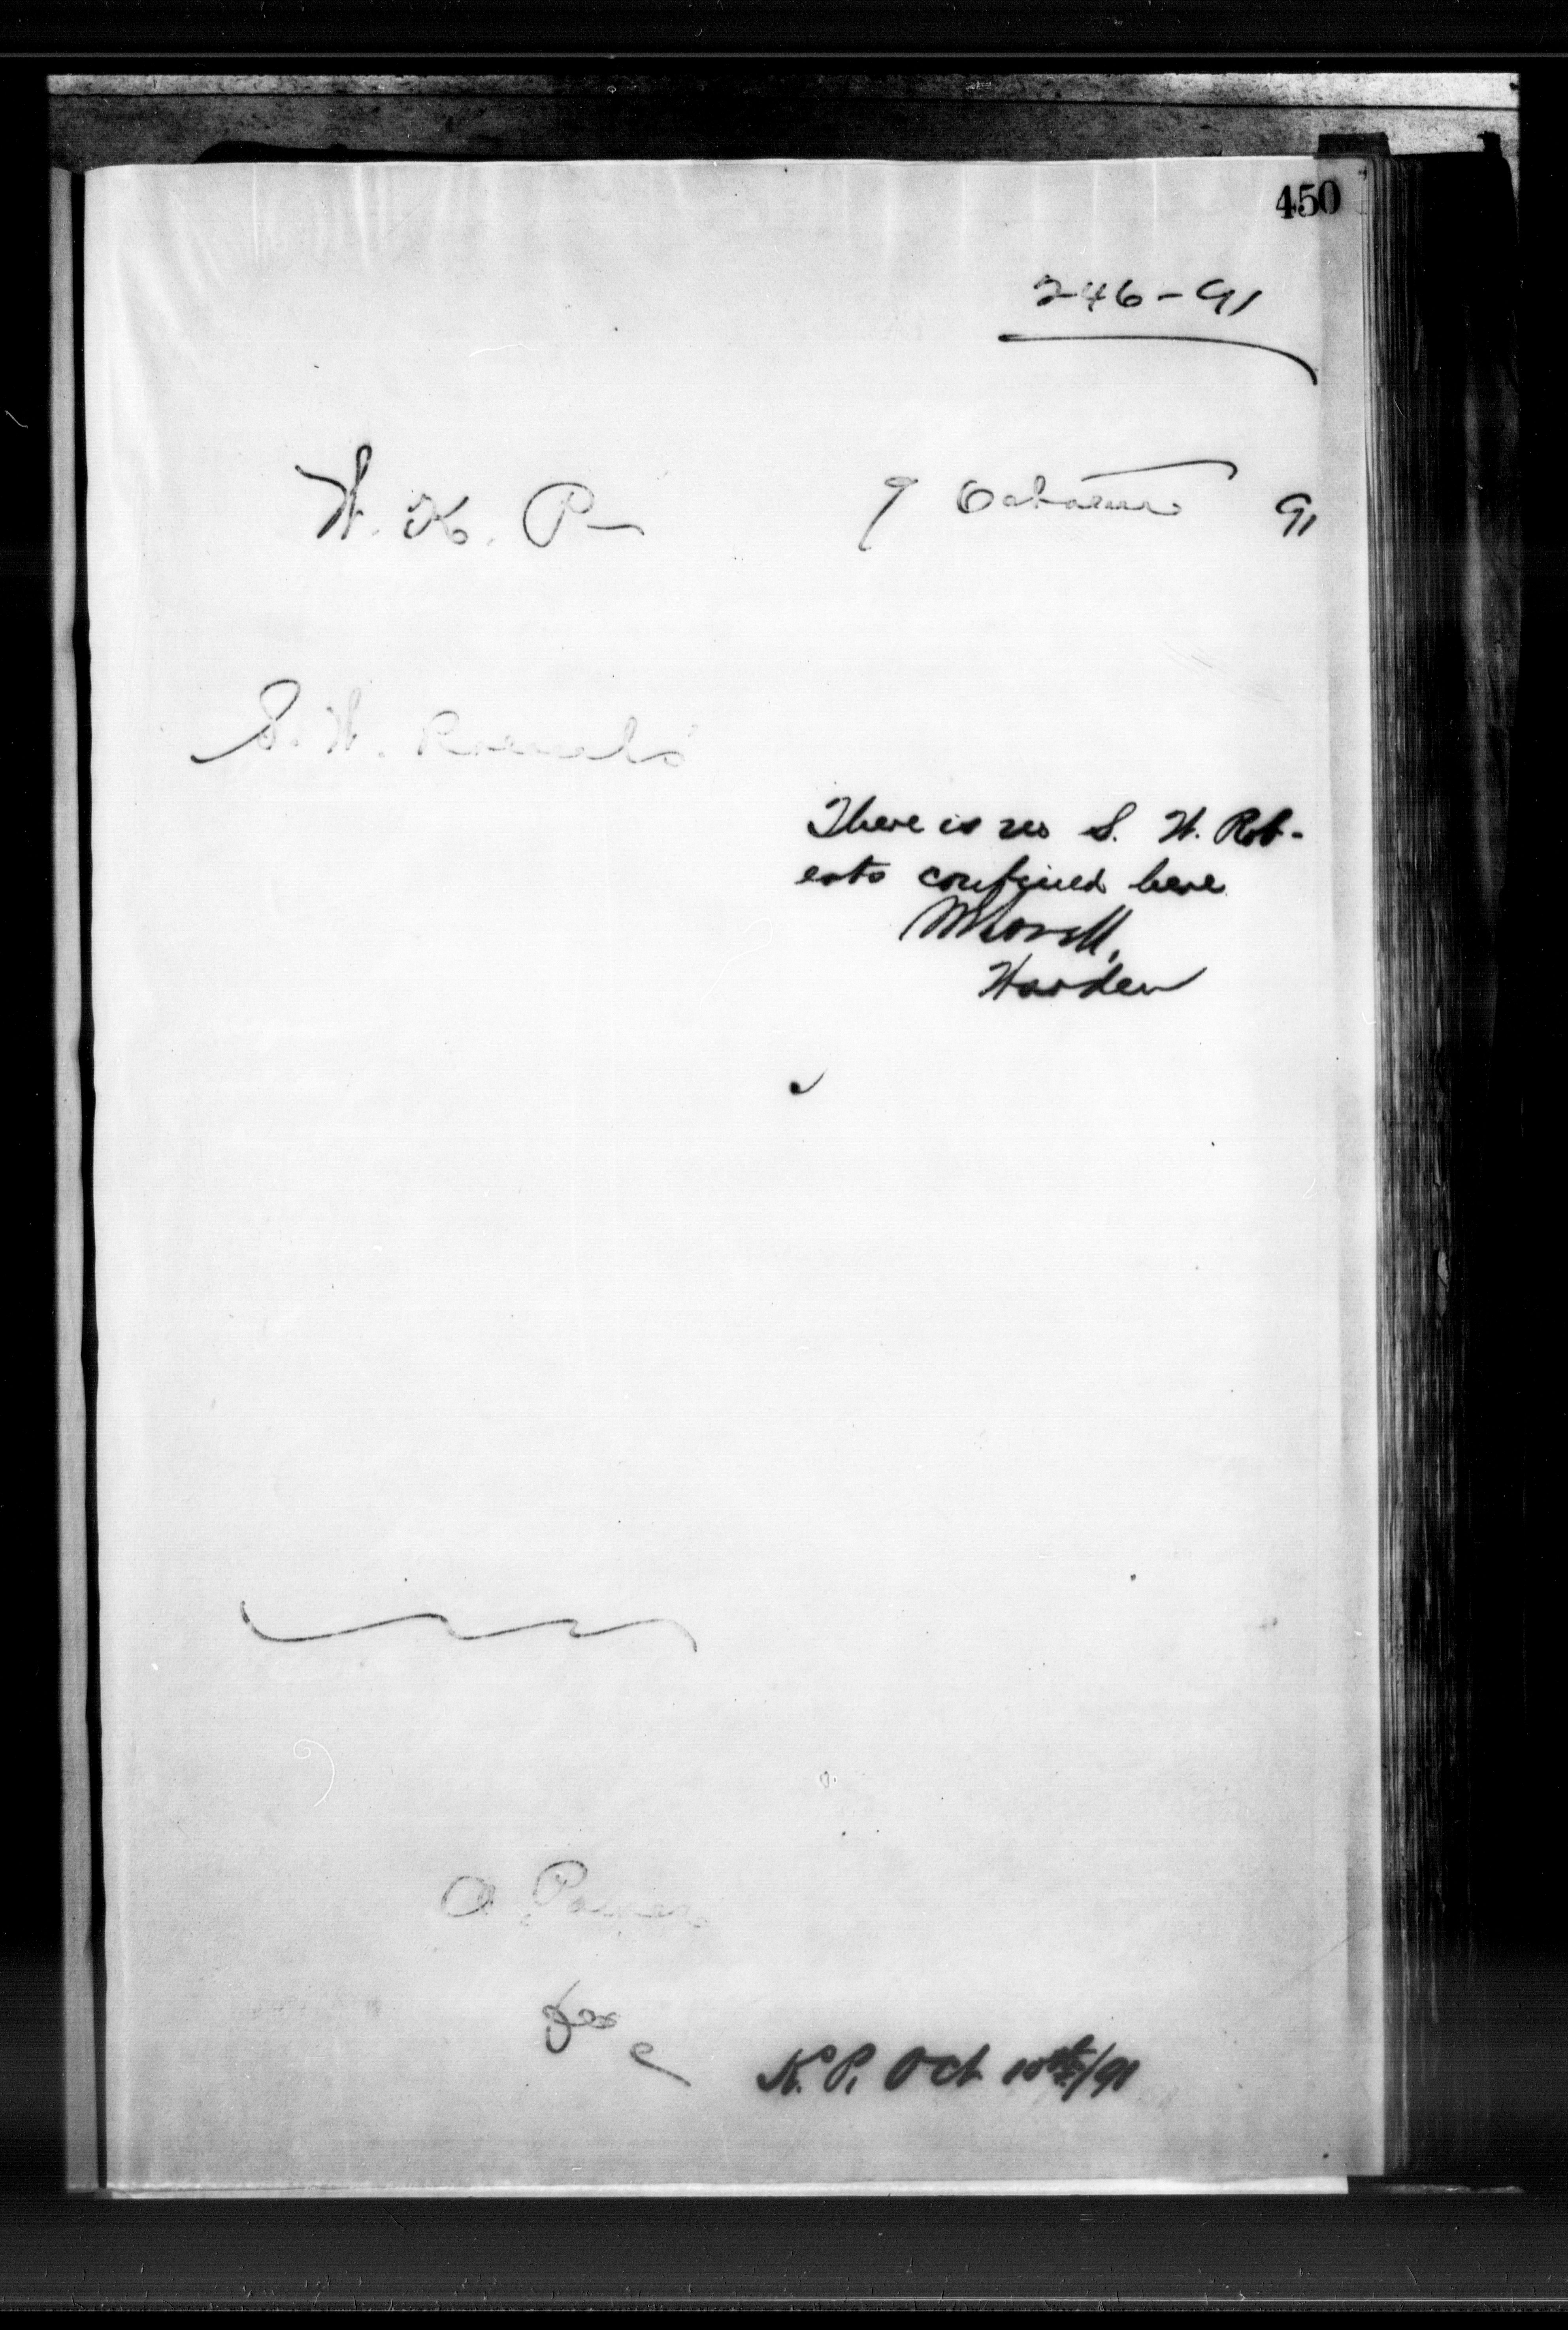 450
246-91
W. K. P 9 October 91
S. W. Roberts
There is no S. W. Rob-
erts confined here
Warden
K. P. Oct 10th/91